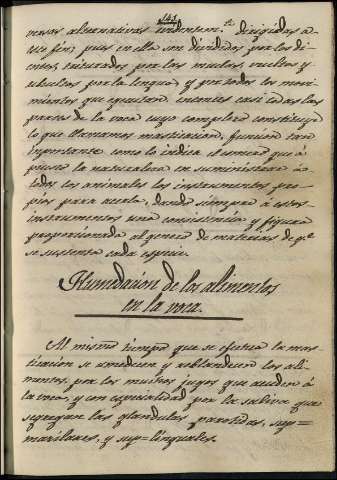 141
neras alternativas tendentem.te dirigidas a
este fin; pues en ella son divididos por los di-
entes, triturados por los muelos, vueltos y
rebueltos por la lengua, y por todos los movi-
mientos que egecutan entonces casi todas las
partes de la voca cuyo complexo constituye
lo que llamamos masticacion, funcion tan
ynportante como lo indica el esmero que á
puesto la naturaleza en suministrar á
todos los animales los instrumentos pro-
pios para acerla, dando siempre á estos
instrumentos una consistencia y figura
proporcionada al genero de materias de q.e
se sustenta cada especie.
Humedacion de los alimentos
en la voca.
Al mismo tiempo que se efectua la mas-
ticacion se umedecen y reblandecen los ali-
mentos, por los muchos jugos que acuden á
la voca, y con especialidad por la saliva que
segregan las glandulas parotidas, sup=
maxilares, y sup=linguales.